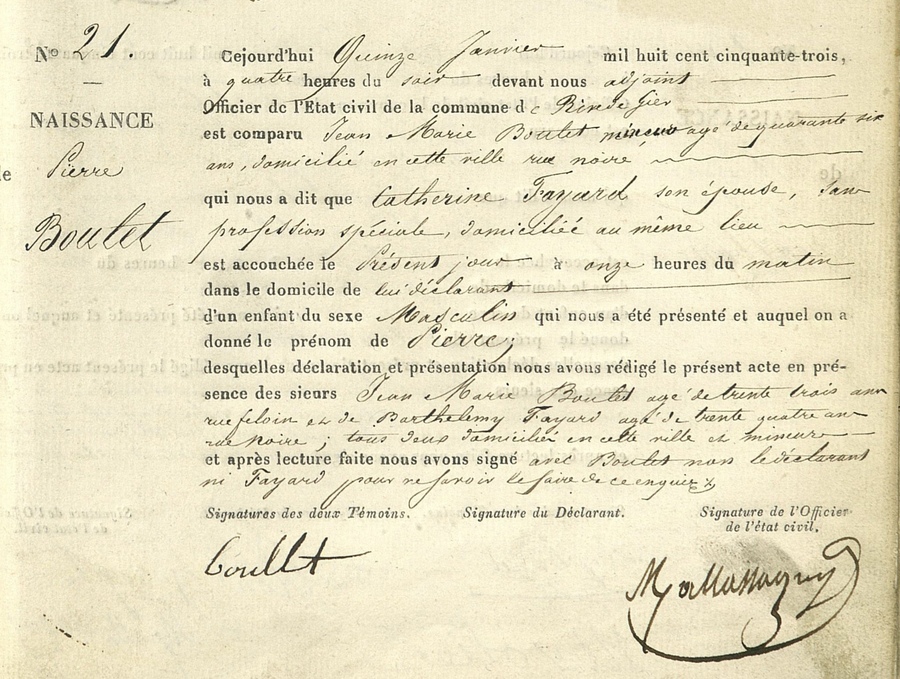 Nº 21
NAISSANCE
Pierre
Boulet
Cejourd'hui Quinze Janvier mil huit cent cinquante-trois,
à quatre heures du soir devant nous adjoint
Officier de l'Etat civil de la commune de Rive de Gier
est comparu Jean Marie Boulet mineur agé de quarante six
ans, domicilié en cette ville rue noire,
qui nous a dit que Catherine Fayard son épouse, sans
profession spéciale, domiciliée au même lieu
est accouchée le Présent jour à onze heures du matin
dans le domicile de lui déclarant
d'un enfant du sexe Masculin qui nous a été présenté et auquel on a
donné le prénom de Pierre;
desquelles déclaration et présentation nous avons rédigé le présent acte en pré-
sence des sieurs Jean Marie Boulet agé de trente trois ans
rue feloin et de Barthelemy Fayard agé de trente quatre ans
rue Noire; tous deux domiciliés en cette ville et mineurs
et après lecture faite nous avons signé avec Boulet non le déclarant
ni Fayard pour ne savoir le faire de ce enquis
Signatures des deux Témoins. Signature du Déclarant. Signature de l'Officier
de l'état civil.
Boullet